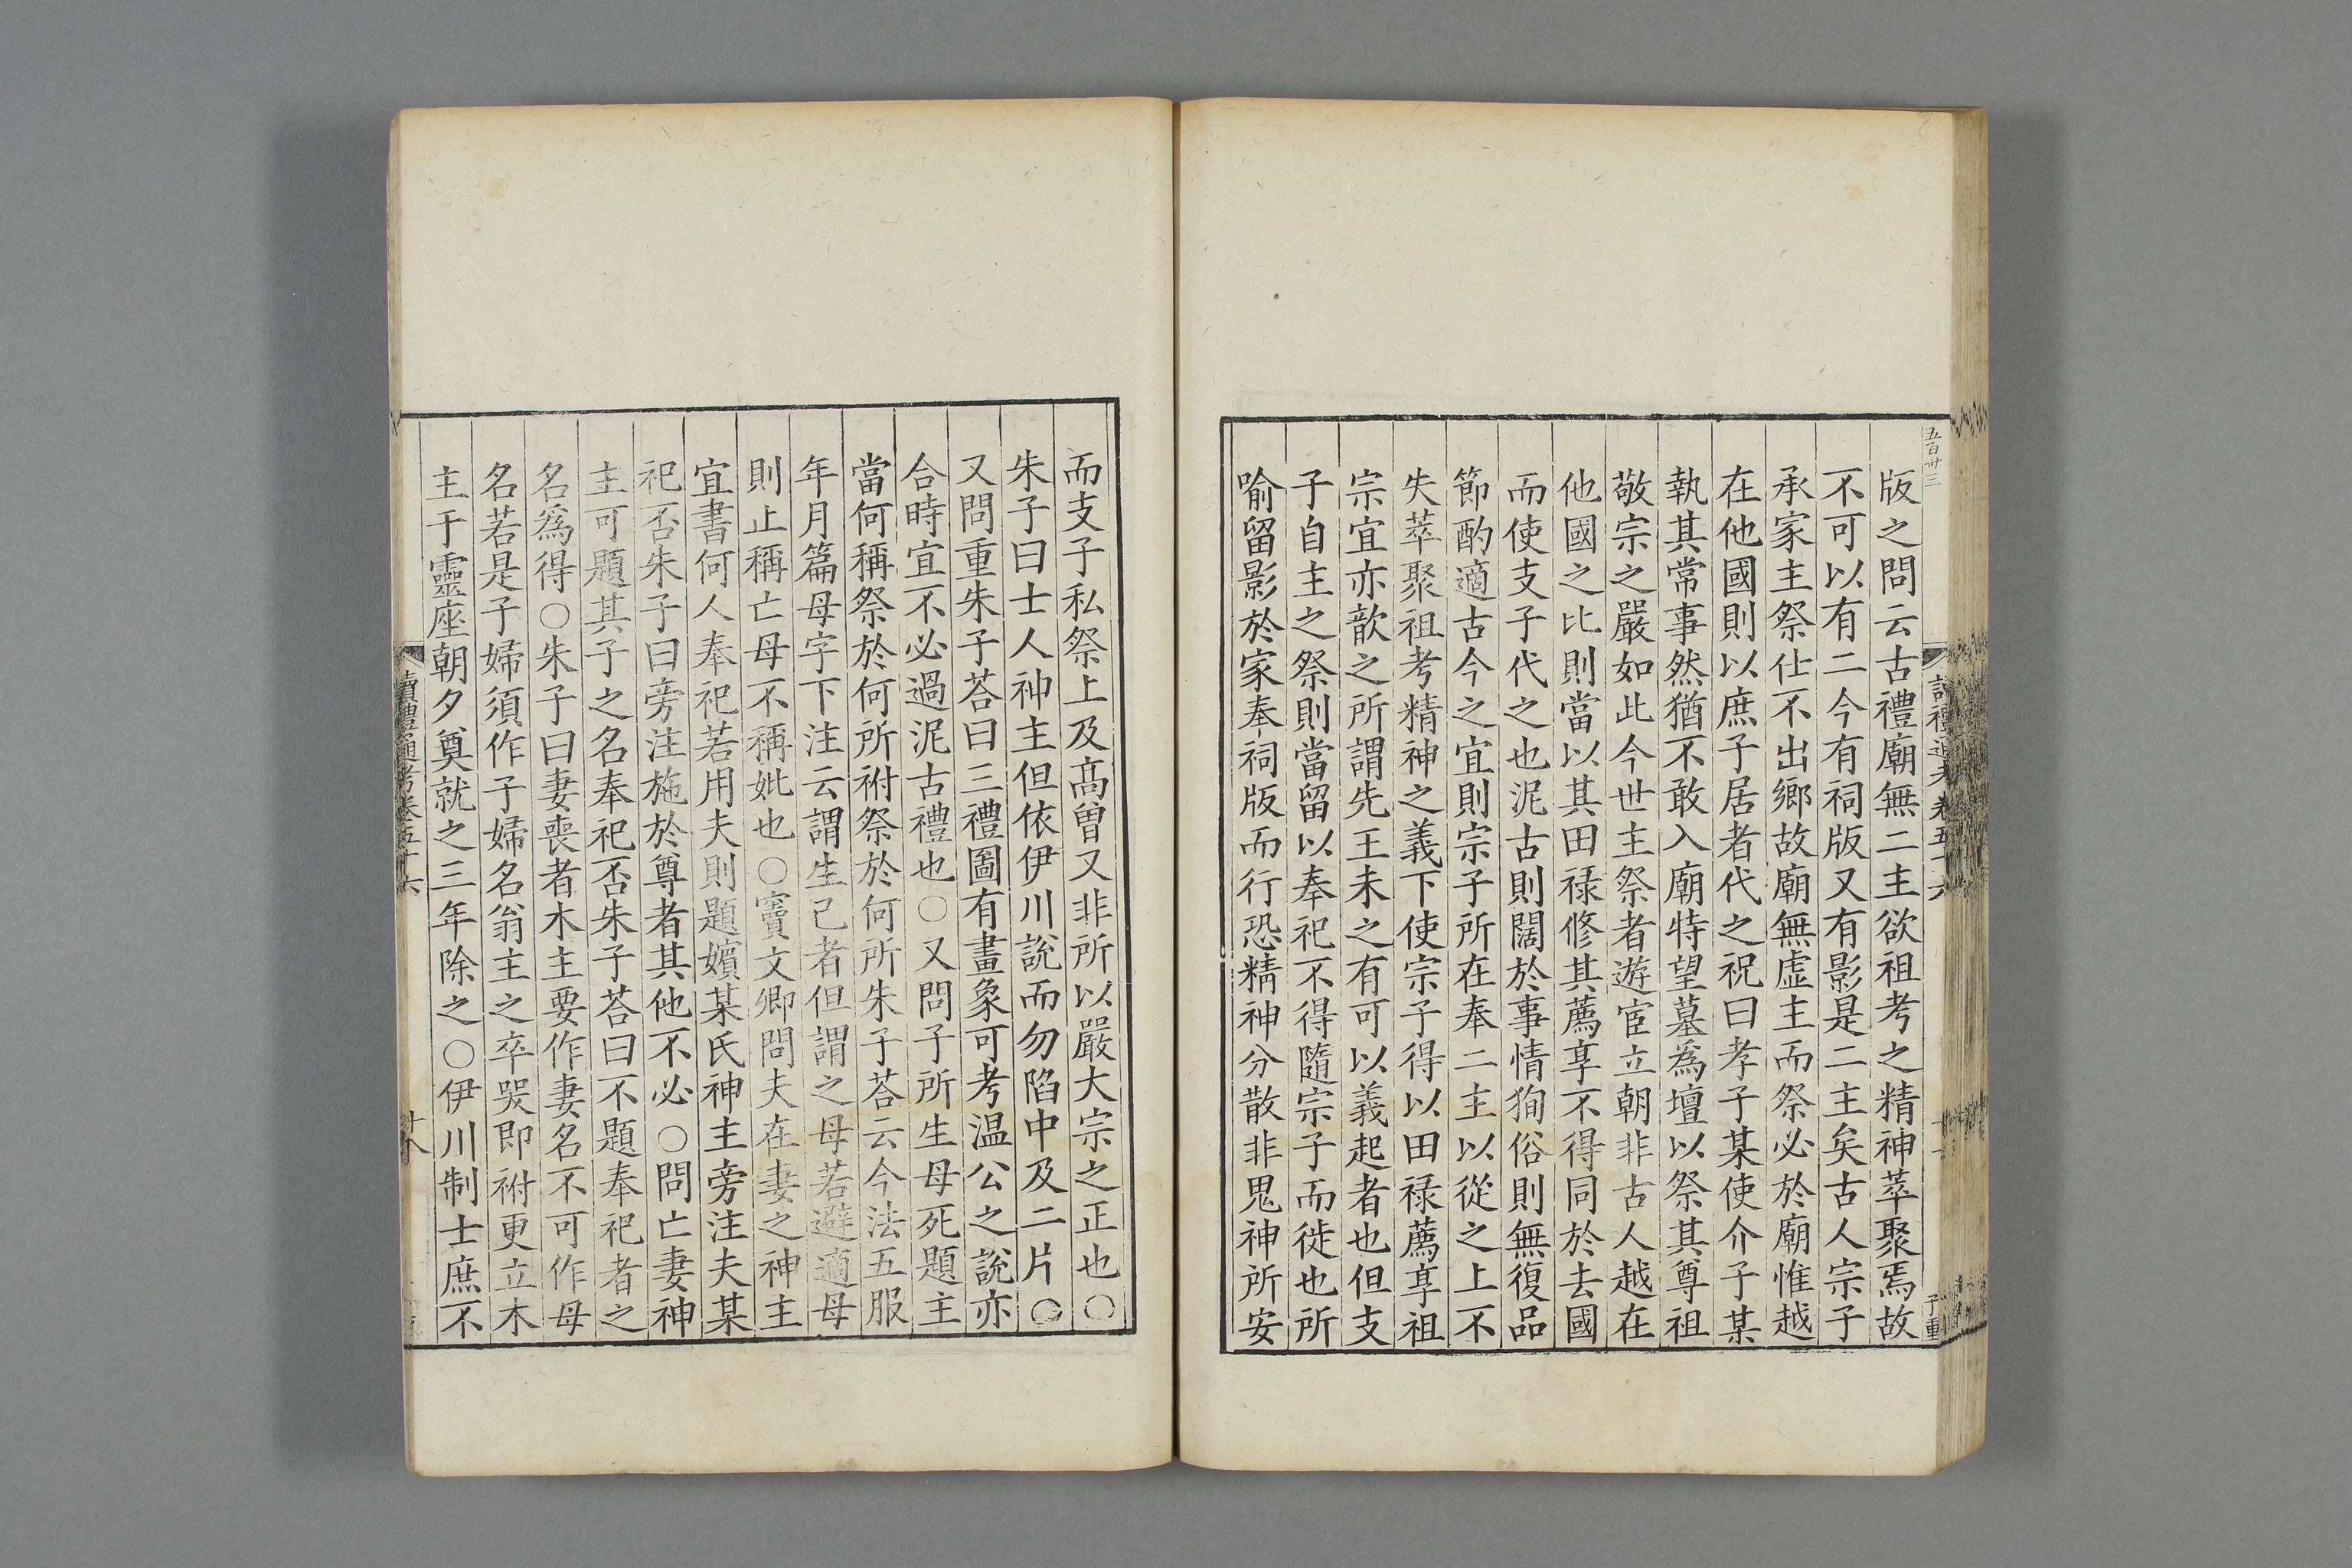 五百卅三
版之問云古禮廟無二主欲祖考之精神萃聚焉故
不可以有二今有祠版又有影是二主矣古人宗子
承家主祭仕不出鄉故廟無虛主而祭必於廟惟越
在他國則以庶子居者代之祝曰孝子某使介子某
執其常事然猶不敢入廟特望墓爲壇以祭其尊祖
敬宗之嚴如此今世主祭者遊宦立朝非古人越在
他國之比則當以其田祿修其薦享不得同於去國
而使支子代之也泥古則闊於事情狥俗則無復品
節酌適古今之宜則宗子所在奉二主以從之上不
失萃聚祖考精神之義下使宗子得以田祿薦享祖
宗宜亦歆之所謂先王未之有可以義起者也但支
子自主之祭則當留以奉祀不得隨宗子而徙也所
喻留影於家奉祠版而行恐精神分散非鬼神所安
而支子私祭上及高曾又非所以嚴大宗之正也○
朱子曰士人神主但依伊川說而勿陷中及二片○
又問重朱子荅曰三禮圖有畫象可考温公之說亦
合時宜不必過泥古禮也○又問子所生母死題主
當何稱祭於何所祔祭於何所朱子荅云今法五服
年月篇母字下注云謂生己者但謂之母若避適母
則止稱亡母不稱妣也○竇文卿問夫在妻之神主
宜書何人奉祀若用夫則題嬪某氏神主旁注夫某
祀否朱子曰旁注施於尊者其他不必○問亡妻神
主可題其子之名奉祀否朱子荅曰不題奉祀者之
名爲得○朱子曰妻喪者木主要作妻名不可作母
名若是子婦須作子婦名翁主之卒哭即祔更立木
主于靈座朝夕奠就之三年除之○伊川制士庶不
讀禮通考卷五十六